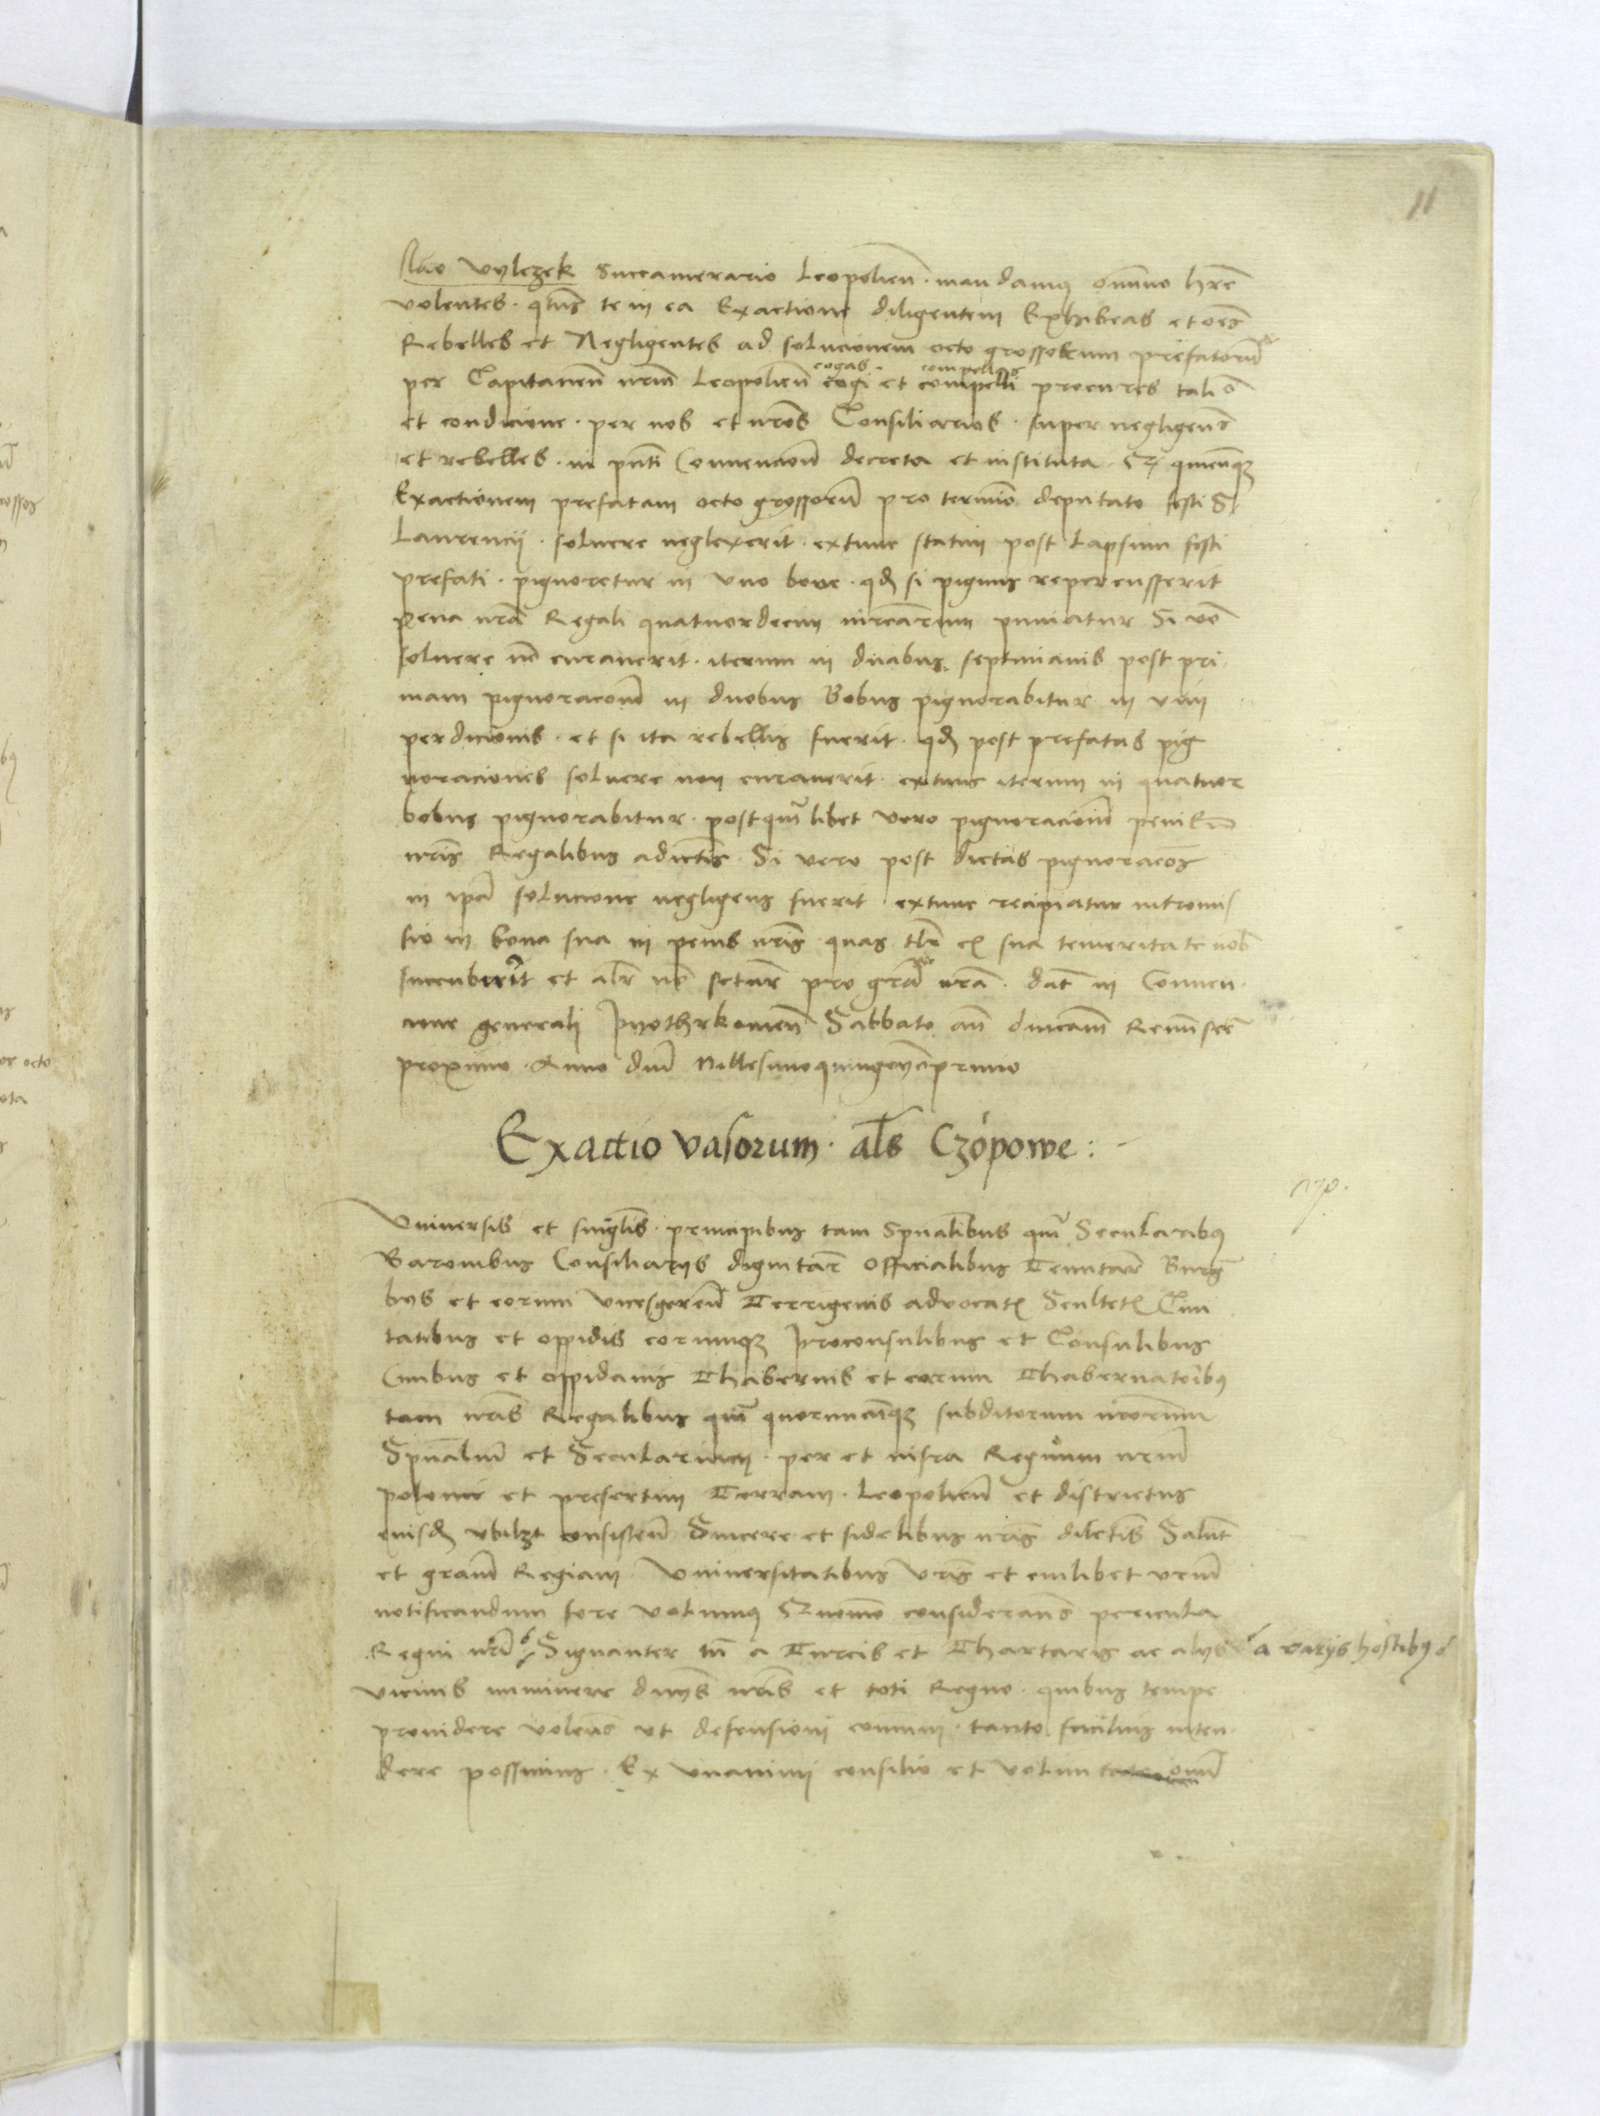 11
slao Vylczek Succamerario Leopolien. mandamus omnino hre
volentes. qtus te in ea Exactione diligentem Exhibeas et oes
Rebelles et Negligentes ad solucionem octo grossorum prefatorum
cogas. compellas
per Capitaneum nrm Leopolien cogi et compelli procures tali
et condicione. per nos et nros Consiliarios. super negligens
et rebelles. in pnti Convencione decreta et instituta. quicunqz
Exactionem prefatam octo grossorum pro termino deputato festi S
Laurencij. solvere neglexerit. extunc statim post lapsum festi
prefati. pignoretur in uno bove. qd si pignus repercusserit
pena nra Regali quatuordecim mrcarum puniatur Si vo
solvere no curaverit. iterum in duabus septimanis post pri
mam pignoracionem in duobus Bobus pignorabitur in vim
perdicionis. et si ita rebellis fuerit. qd post prefatas pig
noraciones solvere non curaverit. extunc iterum in quatuor
bobus pignorabitur. postquamlibet vero pignoracionem penis
nris Regalibus adiectis. Si vero post dictas pignoracos
in ipa solucione negligens fuerit. extunc recipiatur intromis
sio in bona sua in penis nris quas tlr ex sua temeritate nob
succuberit et alr no fctur pro gra nra. dat in Conven
cione generali Pyothrkovien Sabbato an dnicam Reminiscere
proximo. Anno dni Millesimoquingenoprimo
Exactio vasorum. als Czopowe:
Universis et singlis. principibus tam Spualibus qm Secularibus
Baronibus Consiliarijs dignitar Officialibus Tenutar Burg
bijs et eorum vicesgeren Terrigenis advocat Scultet Civi
tatibus et oppidis eorumqz Proconsulibus et Consulibus
Civibus et oppidanis Thabernis et eorum Thabernatoribus
tam nris Regalibus qm quorumcunqz subditorum nrorum
Spualium et Secularium. per et infra Regnum nrm
polonie et presertim Terram. Leopolien et districtus
eiusd ubilzt consisten Sincere et fidelibus nris dilectis Salut
et gram Regiam. Universitatibus vris et cuilibet vrum
notificandum fore volumus Quomo considerans pericula
Regni nri Signanter tn a Turcis et Thartaris ac alijs a varijs hostibus
vicinis imminere dnijs nris et toti Regno. quibus tempe
providere volens ut defensioni communi. tanto facilius inten
dere possimus. Ex unanimi consilio et voluntate omnium